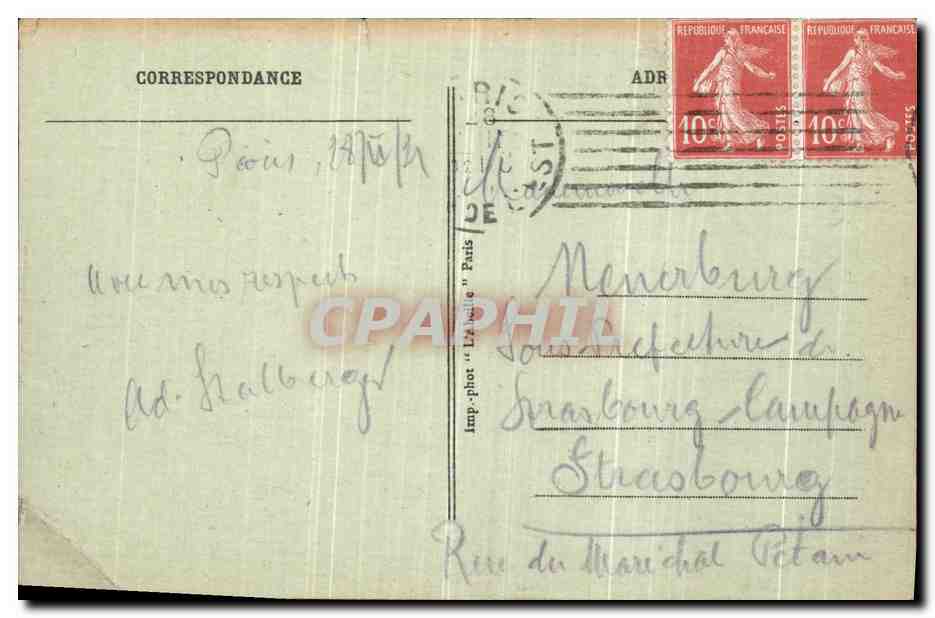 CORRESPONDANCE
ADR
RÉPUBLIQUE FRANÇAISE
10c POSTES
RÉPUBLIQUE FRANÇAISE
10c POSTES
RIS
EST
DE
Paris
Avec mes respects
Ad. Stalberger
Imp.-phot "L'Abeille" Paris
CPAPHIL
Sous Préfecture de
Strasbourg Campagne
Strasbourg
Rue du Maréchal Pétain